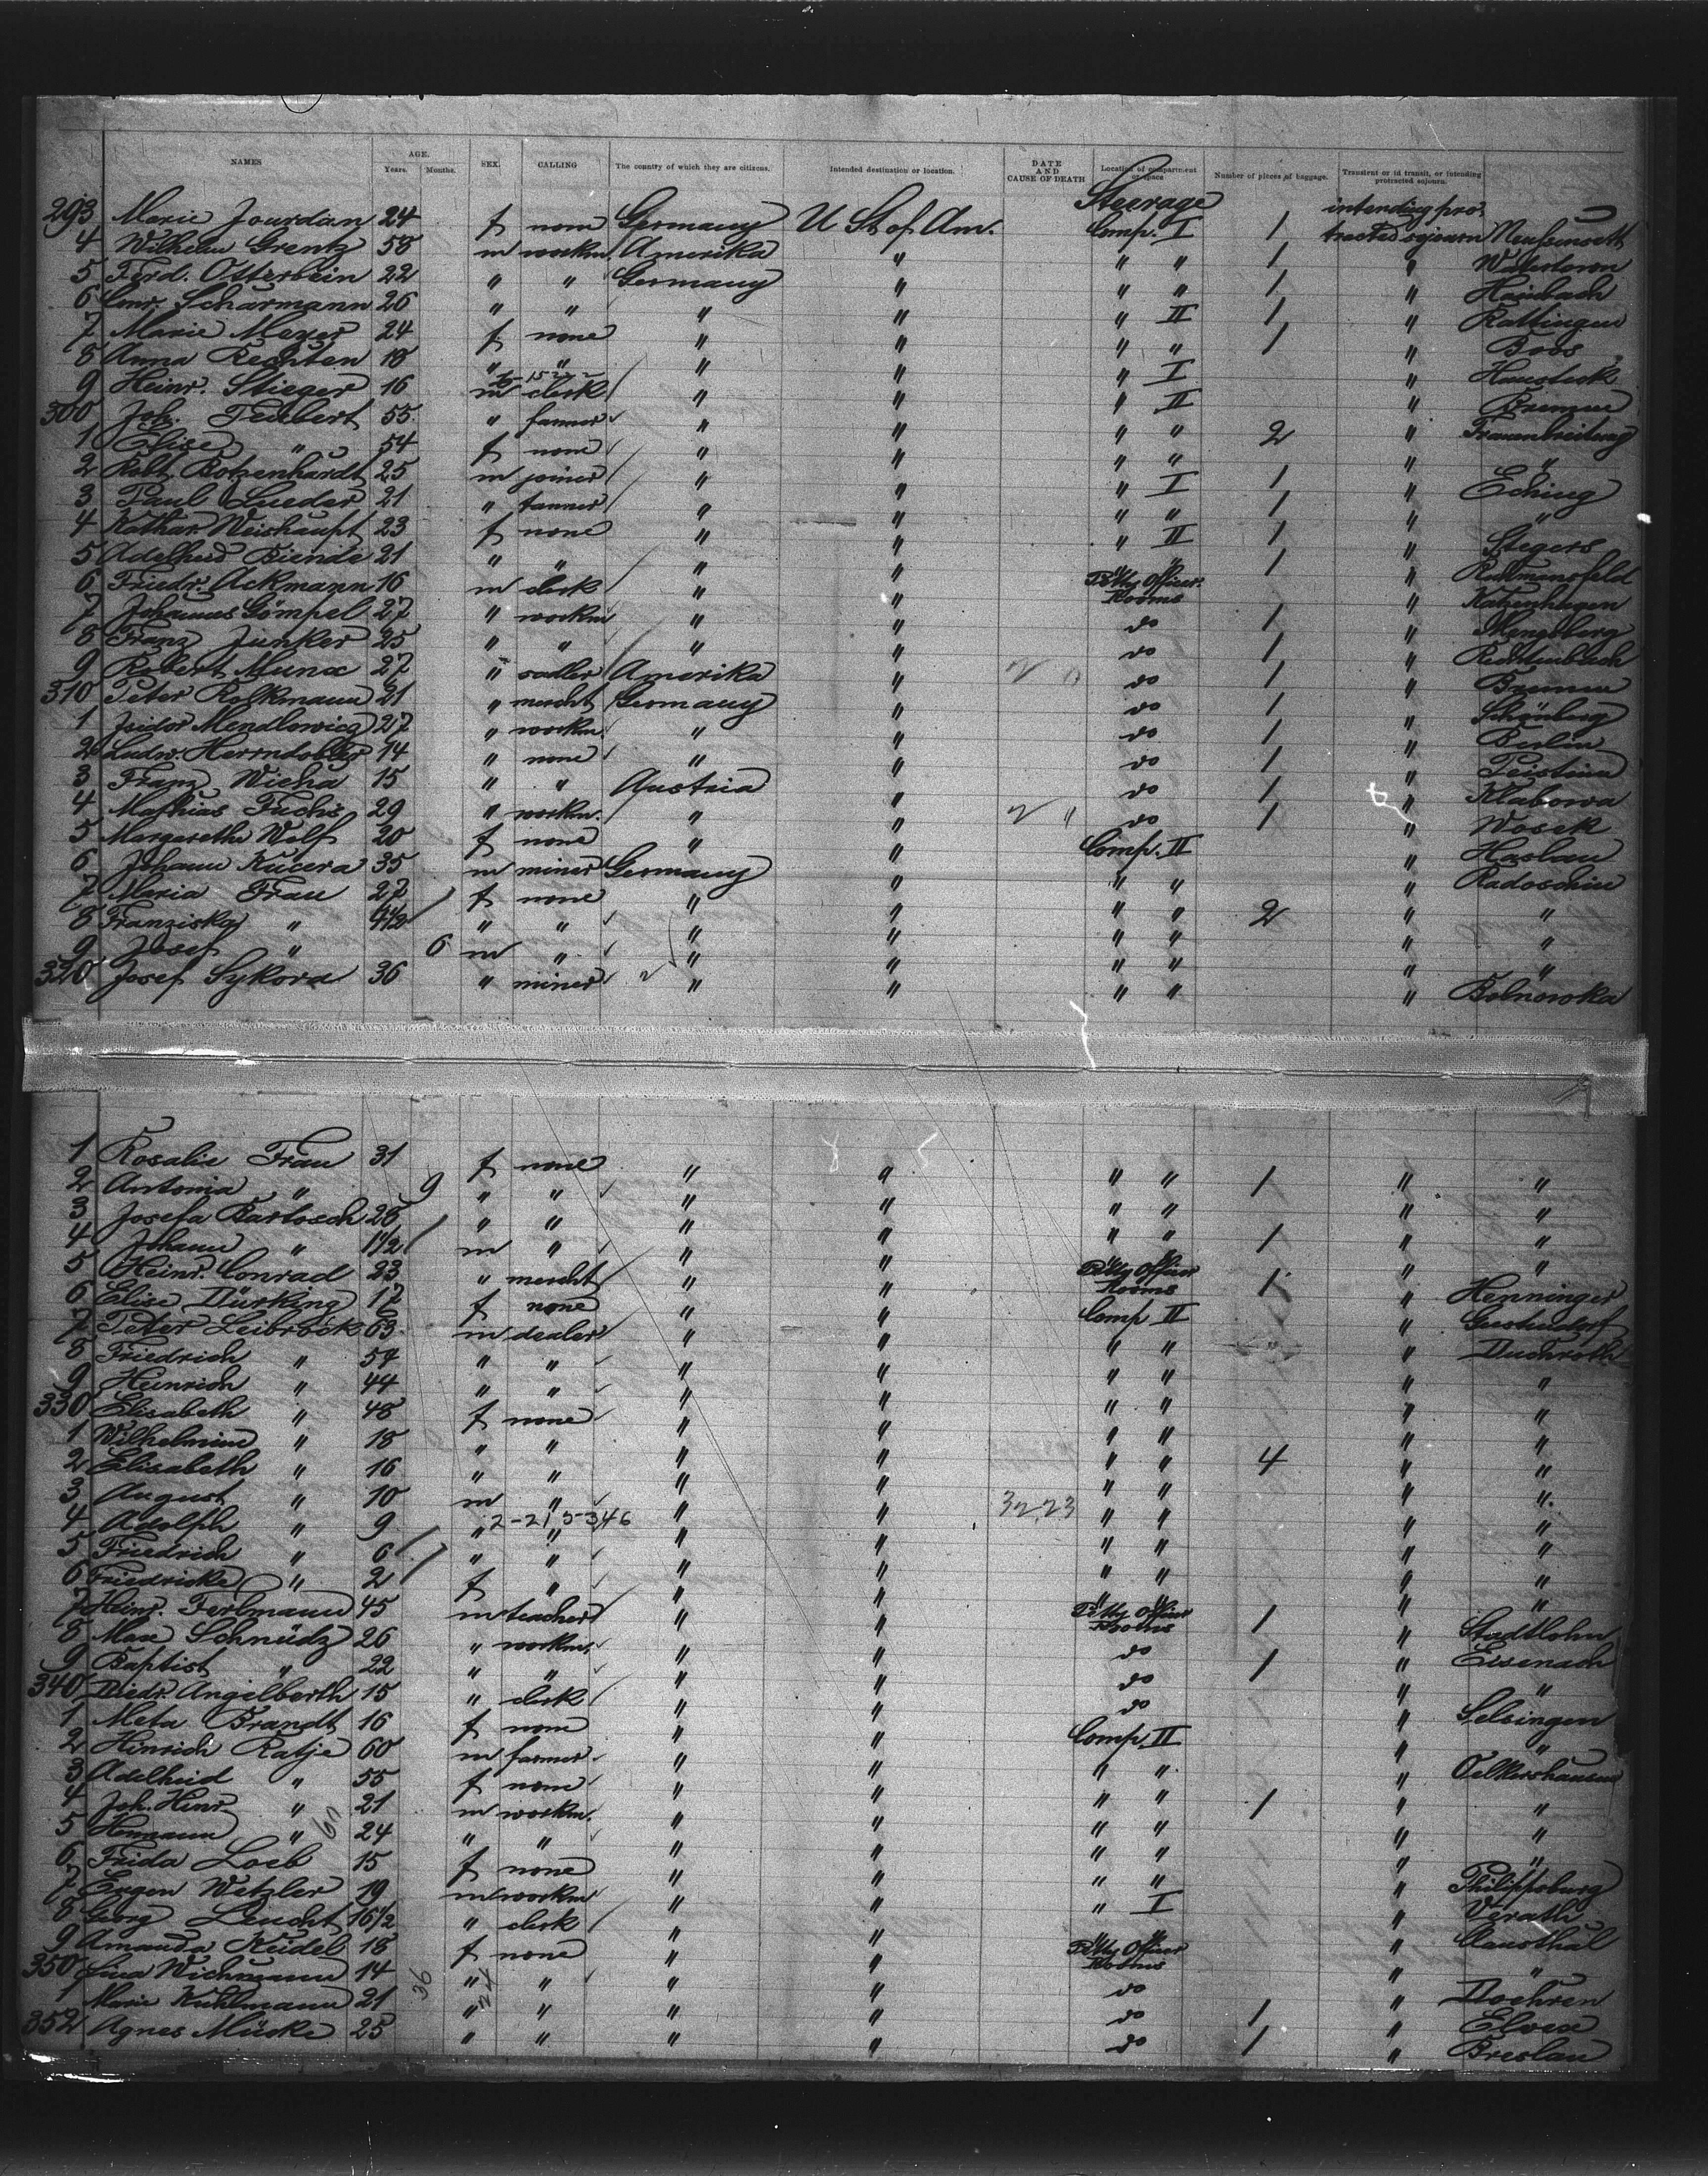 NAMES AGE. Years. Months. SEX. CALLING The country of which they are citizens. Intended destination or location. DATE AND CAUSE OF DEATH Location of compartment or space Number of pieces of baggage. Transient or in transit, or intending protracted sojourn.
Steerage intending pro-
293 Marie Jourdan 24 f none Germany U St of Am. Comp. I 1 tracted sojourn
4 Wilhelm Grentz 58 m workm. Amerika " " " 1 " Watertown
5 Ferd. Otterbein 22 " " Germany " " " 1 " Hainbach
6 Conr. Scharmann 26 " " " " " II 1 " Rattingen
7 Marie Meyer 24 f none " " " " 1 " Boos
8 Anna Rechten 18 " " " " " I "
9 Heinr. Stieger 16 m clerk " " " II "
300 Joh. Teubert 55 " farmer " " " " 2 " Frauenbreitung
1 Elise " 54 f none " " " " " "
2 Robt. Botzenhardt 25 m joiner " " " I 1 " Eching
3 Paul Lueder 21 " tanner " " " " 1 " "
4 Kathar. Weishaupt 23 f none " " " II 1 " Stegers
5 Adelheid Biende 21 " " " " " " 1 "
6 Friedr. Ackmann 16 m clerk " " Petty Officer Rooms " Katzenhagen
7 Johannes Gömpel 27 " workm " " do 1 " Mengsberg
8 Franz Junker 25 " " " " do 1 " Rechtenbach
9 Robert Munx 27 " sadler Amerika " do 1 " Bremen
310 Peter Rolkmann 21 " mercht Germany " do 1 " Schönberg
1 Isidor Mendlowicz 27 " workm. " " do 1 " Berlin
2 Ludw. Herrndobler 14 " none " " do 1 "
3 Franz Wicha 15 " " Austria " do 1 " Klabowa
4 Mathias Fuchs 29 " workm. " " do 1 " Wosek
5 Margarethe Wolf 20 f none " " Comp. II " Haslau
6 Johann Kucera 35 m miner Germany " " " " Radoschin
7 Maria Frau 27 f none " " " " 2 " "
8 Franziska " 4 1/2 " " " " " " " "
9 Josef " 6 m " " " " " " "
320 Josef Sykora 36 " miner " " " " "
1 Rosalie Frau 31 f none " " " " 1 " "
2 Antonia " 9 " " " " " " " "
3 Josefa Bartosch 28 " " " " " " 1 " "
4 Johann " 1 1/2 m " " " " " " "
5 Heinr. Conrad 23 " mercht " " Petty Officer Rooms 1 " Henninger
6 Elise Dürking 17 f none " " Comp II "
7 Peter Leibrock 63 m dealer " " " " " Duchroth
8 Friedrich " 54 " " " " " " " "
9 Heinrich " 44 " " " " " " " "
330 Elisabeth " 48 f none " " " " " "
1 Wilhelmine " 18 " " " " " " 4 " "
2 Elisabeth " 16 " " " " " " " "
3 August " 10 m " " " " " " "
4 Adolph " 9 " " " " " " " "
5 Friedrich " 6 " " " " " " " "
6 Friedricke " 2 f " " " " " " "
7 Heinr. Ferlmann 45 m teacher " " Petty Officer Rooms 1 " Stadtlohn
8 Max Schnüdz 26 " workm. " " do 1 " Eisenach
9 Baptist " 22 " " " " do " "
340 Diedr. Angelberth 15 " clerk " " do " Selsingen
1 Meta Brandt 16 f none " " Comp. II " "
2 Hinrich Ratje 60 m farmer " " " " " Oelkershausen
3 Adelheid " 55 f none " " " " 1 " "
4 Joh. Hinr. " 21 m workm. " " " " " "
5 Hermann " 24 " " " " " " " "
6 Frida Loeb 15 f none " " " " " Philippsburg
7 Eugen Wetzler 19 m workm " " " I "
8 Georg Leucht 16 1/2 " clerk " " " " " Clausthal
9 Amanda Keidel 18 f none " " Petty Officer Rooms " "
350 Lina Wichmann 14 " " " " do " Doehren
1 Marie Kuhlmann 21 " " " " do 1 "
352 Agnes Mücke 25 " " " " do 1 " Breslau